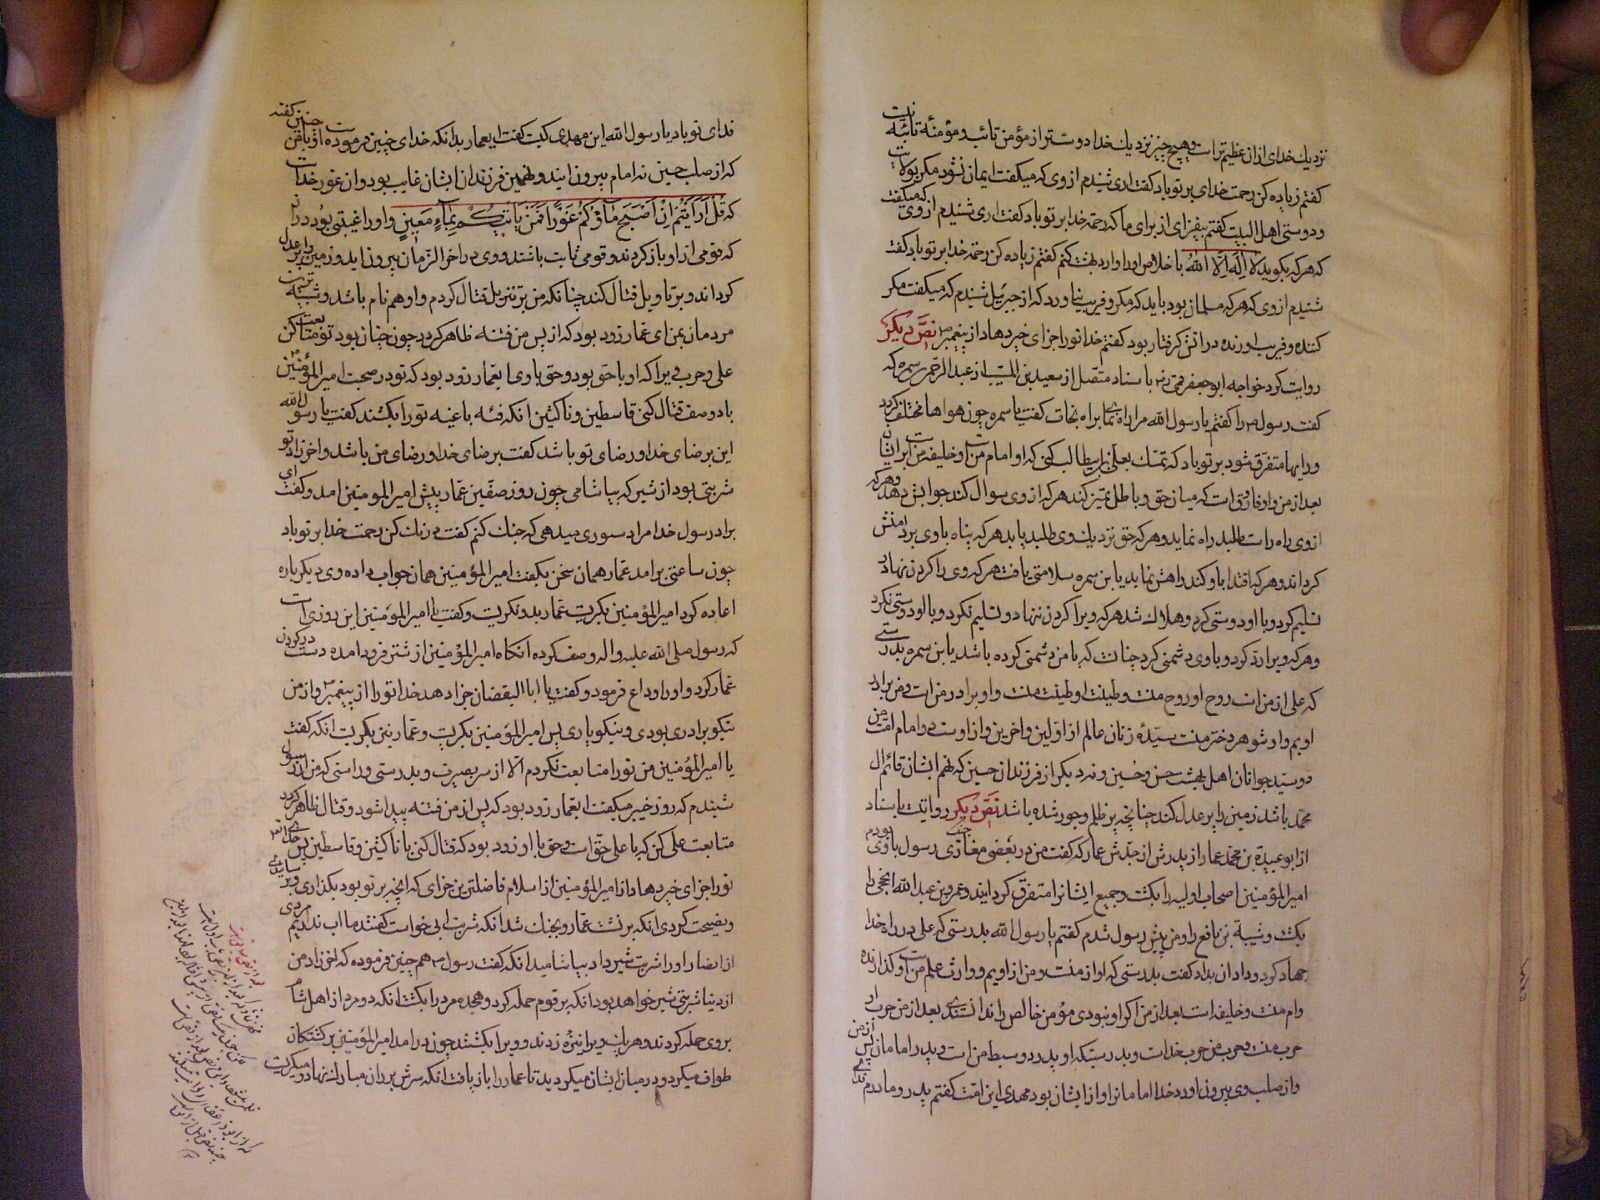 نزدیك خدای ازان عظیم‌تر است و هیچ چیز نزدیك خدا دوستر از مؤمن تائب و مؤمنهٔ تائبه نیست
کفتم زیاده کن رحمت خدای بر تو باد کفت اری شنیدم از وی که میکفت ایمان نشود مکر بولایت
و دوستی اهل البیت کفتم بیفزای از برای ما که رحمة خدا بر تو باد کفت اری شنیدم از وی که میکفت
که هر که بکوید لا اله الا الله با خلاص او را وارد بهشت کنم کفتم زیاده کن رحمة خدا بر تو باد کفت
شنیدم از وی که هر که مسلمان بود باید که مکر و فریب نیاورد که از جبرئیل شنیدم که میکفت مکر
کننده و فریب اورنده در اتش کرفتار بود کفتم خدا تو را جزای خیر دهاد از پیغمبر نص دیکر
روایت کرد خواجه ابو جعفر قمی باسناد متصل از سعید بن المسیب از عبد الرحمن سمره که
کفت رسول را کفتم یا رسول الله مرا راه نمای براه نجات کفت یا سمره چون هواها مختلف کردد
و رایها متفرق شود بر تو باد که تمسك بعلی بن ابیطالب کنی که او امام من است و خلیفه من بر ایشان
بعد از من و او فاروق است که میان حق و باطل تمیز کند هر که از وی سوال کند جوابش دهد و هر که
از وی راه راست طلبد راه نماید و هر که حق نزدیك وی طلبد یابد هر که پناه با وی برد امنش
کرداند و هر که اقتدا باو کند راهش نماید یا بن سمره سلامتی یافت هر که وی را کردن نهاد
تسلیم کرد و با او دوستی کرد و هلاك شد هر که ویرا کردن ننهاد و تسلیم نکرد و با او دوستی نکرد
و هر که ویرا رد کرد و با وی دشمنی کرد چنانست که با من دشمنی کرده باشد یا بن سمره بدرستی
که علی از من است روح او روح منست و طینت او طینت منست و او برادر من است و من برادر
اویم و او شوهر دختر منست سیّدهٔ زنان عالم از اولین و اخرین و از اوست دو امام امت من
دو سید جوانان اهل بهشت حسن و حسین و نه دیکر از فرزندان حسین که نهم ایشان قائم ال
محمد باشد زمین را پر عدل کند چنانچه پر ظلم و جور شده باشد نص دیکر روایتست باسناد
از ابو عبیدة بن محمد عمار از پدرش از جدش عمار که کفت من در بعضی مغازی رسول با وی بودم
امیر المؤمنین اصحاب اولیه را بکشت و جمیع ایشانرا متفرق کردانید و عمرو بن عبد الله الجمحی را
بکشت و شیبة بن نافع را و من پیش رسول شدم کفتم یا رسول الله بدرستی که علی در راه خدا
جهاد کرد و داد ان بداد کفت بدرستی که او از منست و من از اویم و وارث علم من است و کذارنده
وام منست و خلیفه است بعد از من اکر او نبودی مؤمن خالص را ندانستندی بعد از من حرب او
حرب منست و حرب من حرب خداست و بدرستیکه او پدر دو سبط من است و پدر امامان پس از من
و از صلب وی بیرون اورد خدا امامانرا و از ایشان بود مهدی این امت کفتم پدر و مادرم فدای
فدای تو باد یا رسول الله این مهدی کیست کفت ای عمار بدانکه خدای چنین فرموده
که از صلب حسین نه امام بیرون ایند و نهمین فرزندان ایشان غایب بود و ان
که قل ارایتم ان اصبح ماؤکم غورا فمن یاتیکم بماء معین و او را غیبتی بود دراز
که قومی از او باز کردند و قومی ثابت باشند و وی در اخر الزمان بیرون اید و زمین پر از عدل
کرداند و بر تاویل قتال کند چنانکه من بر تنزیل قتال کردم و او هم نام باشد و شبیه
مردمان بمن ای عمار زود بود که از پس من فتنه ظاهر کردد چون چنان بود تو متابعت کن
علی و حزب ویرا که او با حق بود و حق با وی ای عمار زود بود که تو در صحبت امیر المؤمنین
با دو صف قتال کنی قاسطین و ناکثین انکه فئه باغیه تو را بکشند کفت یا رسول الله
این برضای خدا و رضای تو باشد کفت برضای خدا و رضای من باشد و اخر زاد تو
شربتی بود از شیر که بیاشامی چون روز صفین عمار پیش امیر المومنین امد و کفت ای
برادر رسول خدا مرا دستوری میدهی که جنك کنم کفت درنك کن رحمت خدا بر تو باد
چون ساعتی برامد عمار همان سخن بکفت امیر المؤمنین همان جواب داد و وی دیکر باره
اعاده کرد امیر المؤمنین بکریست عمار بدو نکریست و کفت یا امیر المؤمنین این روزیست
که رسول صلی الله علیه و اله وصف کرده انکاه امیر المؤمنین از شتر فرود امده دست در کردن
عمار کرد و او را وداع فرمود و کفت یا ابا الیقضان جزا دهد خدا تو را از پیغمبر و از من
نیکو برادری بودی و نیکو یاری پس امیر المؤمنین بکریست و عمار نیز بکریست انکه کفت
یا امیر المؤمنین من تو را متابعت نکردم الا از سر بصیرت و بدرستی و راستی که من از رسول
شنیدم که روز خیبر میکفت ای عمار زود بود که پس از من فتنه پیدا شود و قتال ظاهر کردد
متابعت علی کن که با علی حق است و حق با او زود بود که قتال کنی با ناکثین و قاسطین پس خدای
تو را جزای خیر دهاد از امیر المؤمنین از اسلام فاضلترین جزای که انچه بر تو بود بکذاری
و نصیحت کردی انکه برنشست عمار و بجنك شد انکه شربت ابی خواست کفتند ما اب نداریم مردی
از انصار او را شربت شیر داد بیاشامید انکه کفت رسول هم چنین فرموده که اخر زاد من
از دنیا شربتی شیر خواهد بود انکه بر قوم حمله کرد و هجده مرد را بکشت انکه دو مرد از اهل شام
بر وی حمله کردند و هر یك ویرا نیزه زدند و ویرا بکشتند چون درامد امیر المؤمنین بر کشتکان
طواف میکرد و در میان ایشان میکردید تا عمار را بازیافت انکه سرش بر ران مبارك نهاد و میکریست